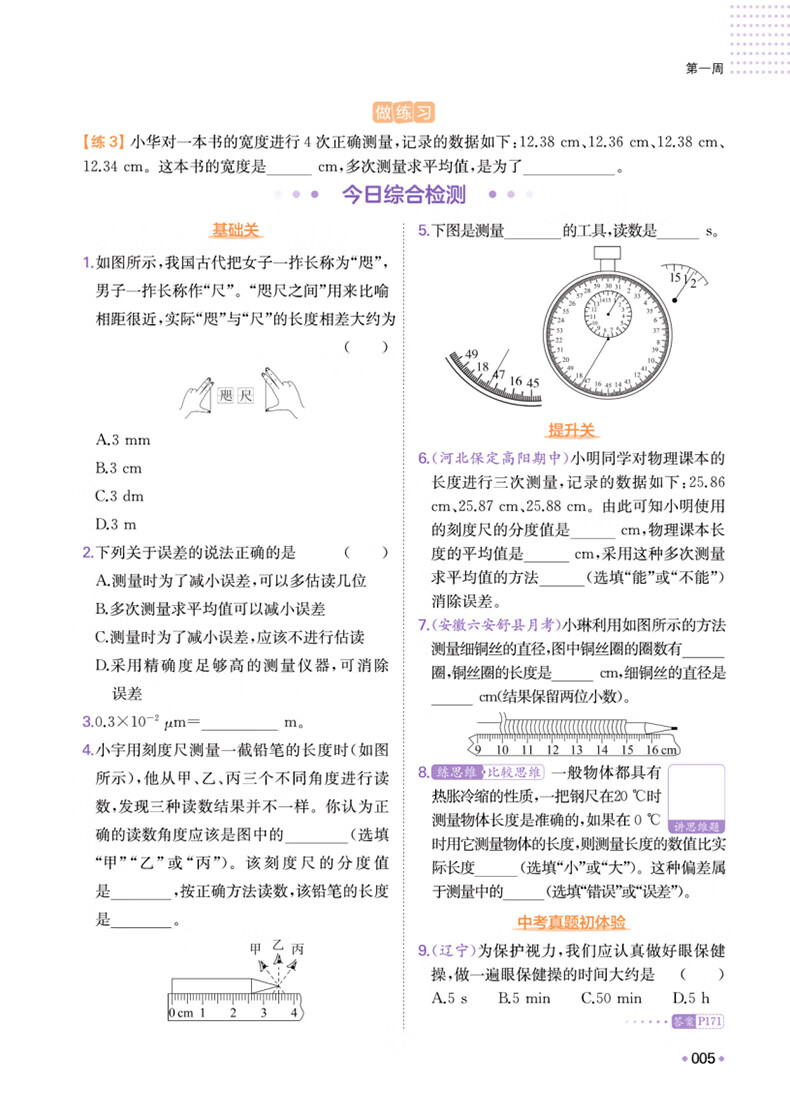 第一周
做练习
【练3】小华对一本书的宽度进行4次正确测量,记录的数据如下:12.38 cm、12.36 cm、12.38 cm、
12.34 cm。这本书的宽度是______ cm,多次测量求平均值,是为了____________。
今日综合检测
基础关
1.如图所示,我国古代把女子一拃长称为“咫”,
男子一拃长称作“尺”。“咫尺之间”用来比喻
相距很近,实际“咫”与“尺”的长度相差大约为
( )
咫 尺
A.3 mm
B.3 cm
C.3 dm
D.3 m
2.下列关于误差的说法正确的是 ( )
A.测量时为了减小误差,可以多估读几位
B.多次测量求平均值可以减小误差
C.测量时为了减小误差,应该不进行估读
D.采用精确度足够高的测量仪器,可消除
误差
3.0.3×10⁻² μm=__________ m。
4.小宇用刻度尺测量一截铅笔的长度时(如图
所示),他从甲、乙、丙三个不同角度进行读
数,发现三种读数结果并不一样。你认为正
确的读数角度应该是图中的________(选填
“甲”“乙”或“丙”)。该刻度尺的分度值
是________,按正确方法读数,该铅笔的长度
是________。
甲 乙 丙
0 cm 1 2 3 4
5.下图是测量________的工具,读数是______ s。
15 1 2
49 18 47 16 45
提升关
6.(河北保定高阳期中)小明同学对物理课本的
长度进行三次测量,记录的数据如下:25.86
cm、25.87 cm、25.88 cm。由此可知小明使用
的刻度尺的分度值是______ cm,物理课本长
度的平均值是______ cm,采用这种多次测量
求平均值的方法______(选填“能”或“不能”)
消除误差。
7.(安徽六安舒县月考)小琳利用如图所示的方法
测量细铜丝的直径,图中铜丝圈的圈数有______
圈,铜丝圈的长度是______ cm,细铜丝的直径是
______ cm(结果保留两位小数)。
9 10 11 12 13 14 15 16 cm
8.练思维 比较思维 一般物体都具有
热胀冷缩的性质,一把钢尺在20 ℃时
测量物体长度是准确的,如果在 0 ℃
讲思维题
时用它测量物体的长度,则测量长度的数值比实
际长度______(选填“小”或“大”)。这种偏差属
于测量中的______(选填“错误”或“误差”)。
中考真题初体验
9.(辽宁)为保护视力,我们应认真做好眼保健
操,做一遍眼保健操的时间大约是 ( )
A.5 s B.5 min C.50 min D.5 h
答案 P171
005